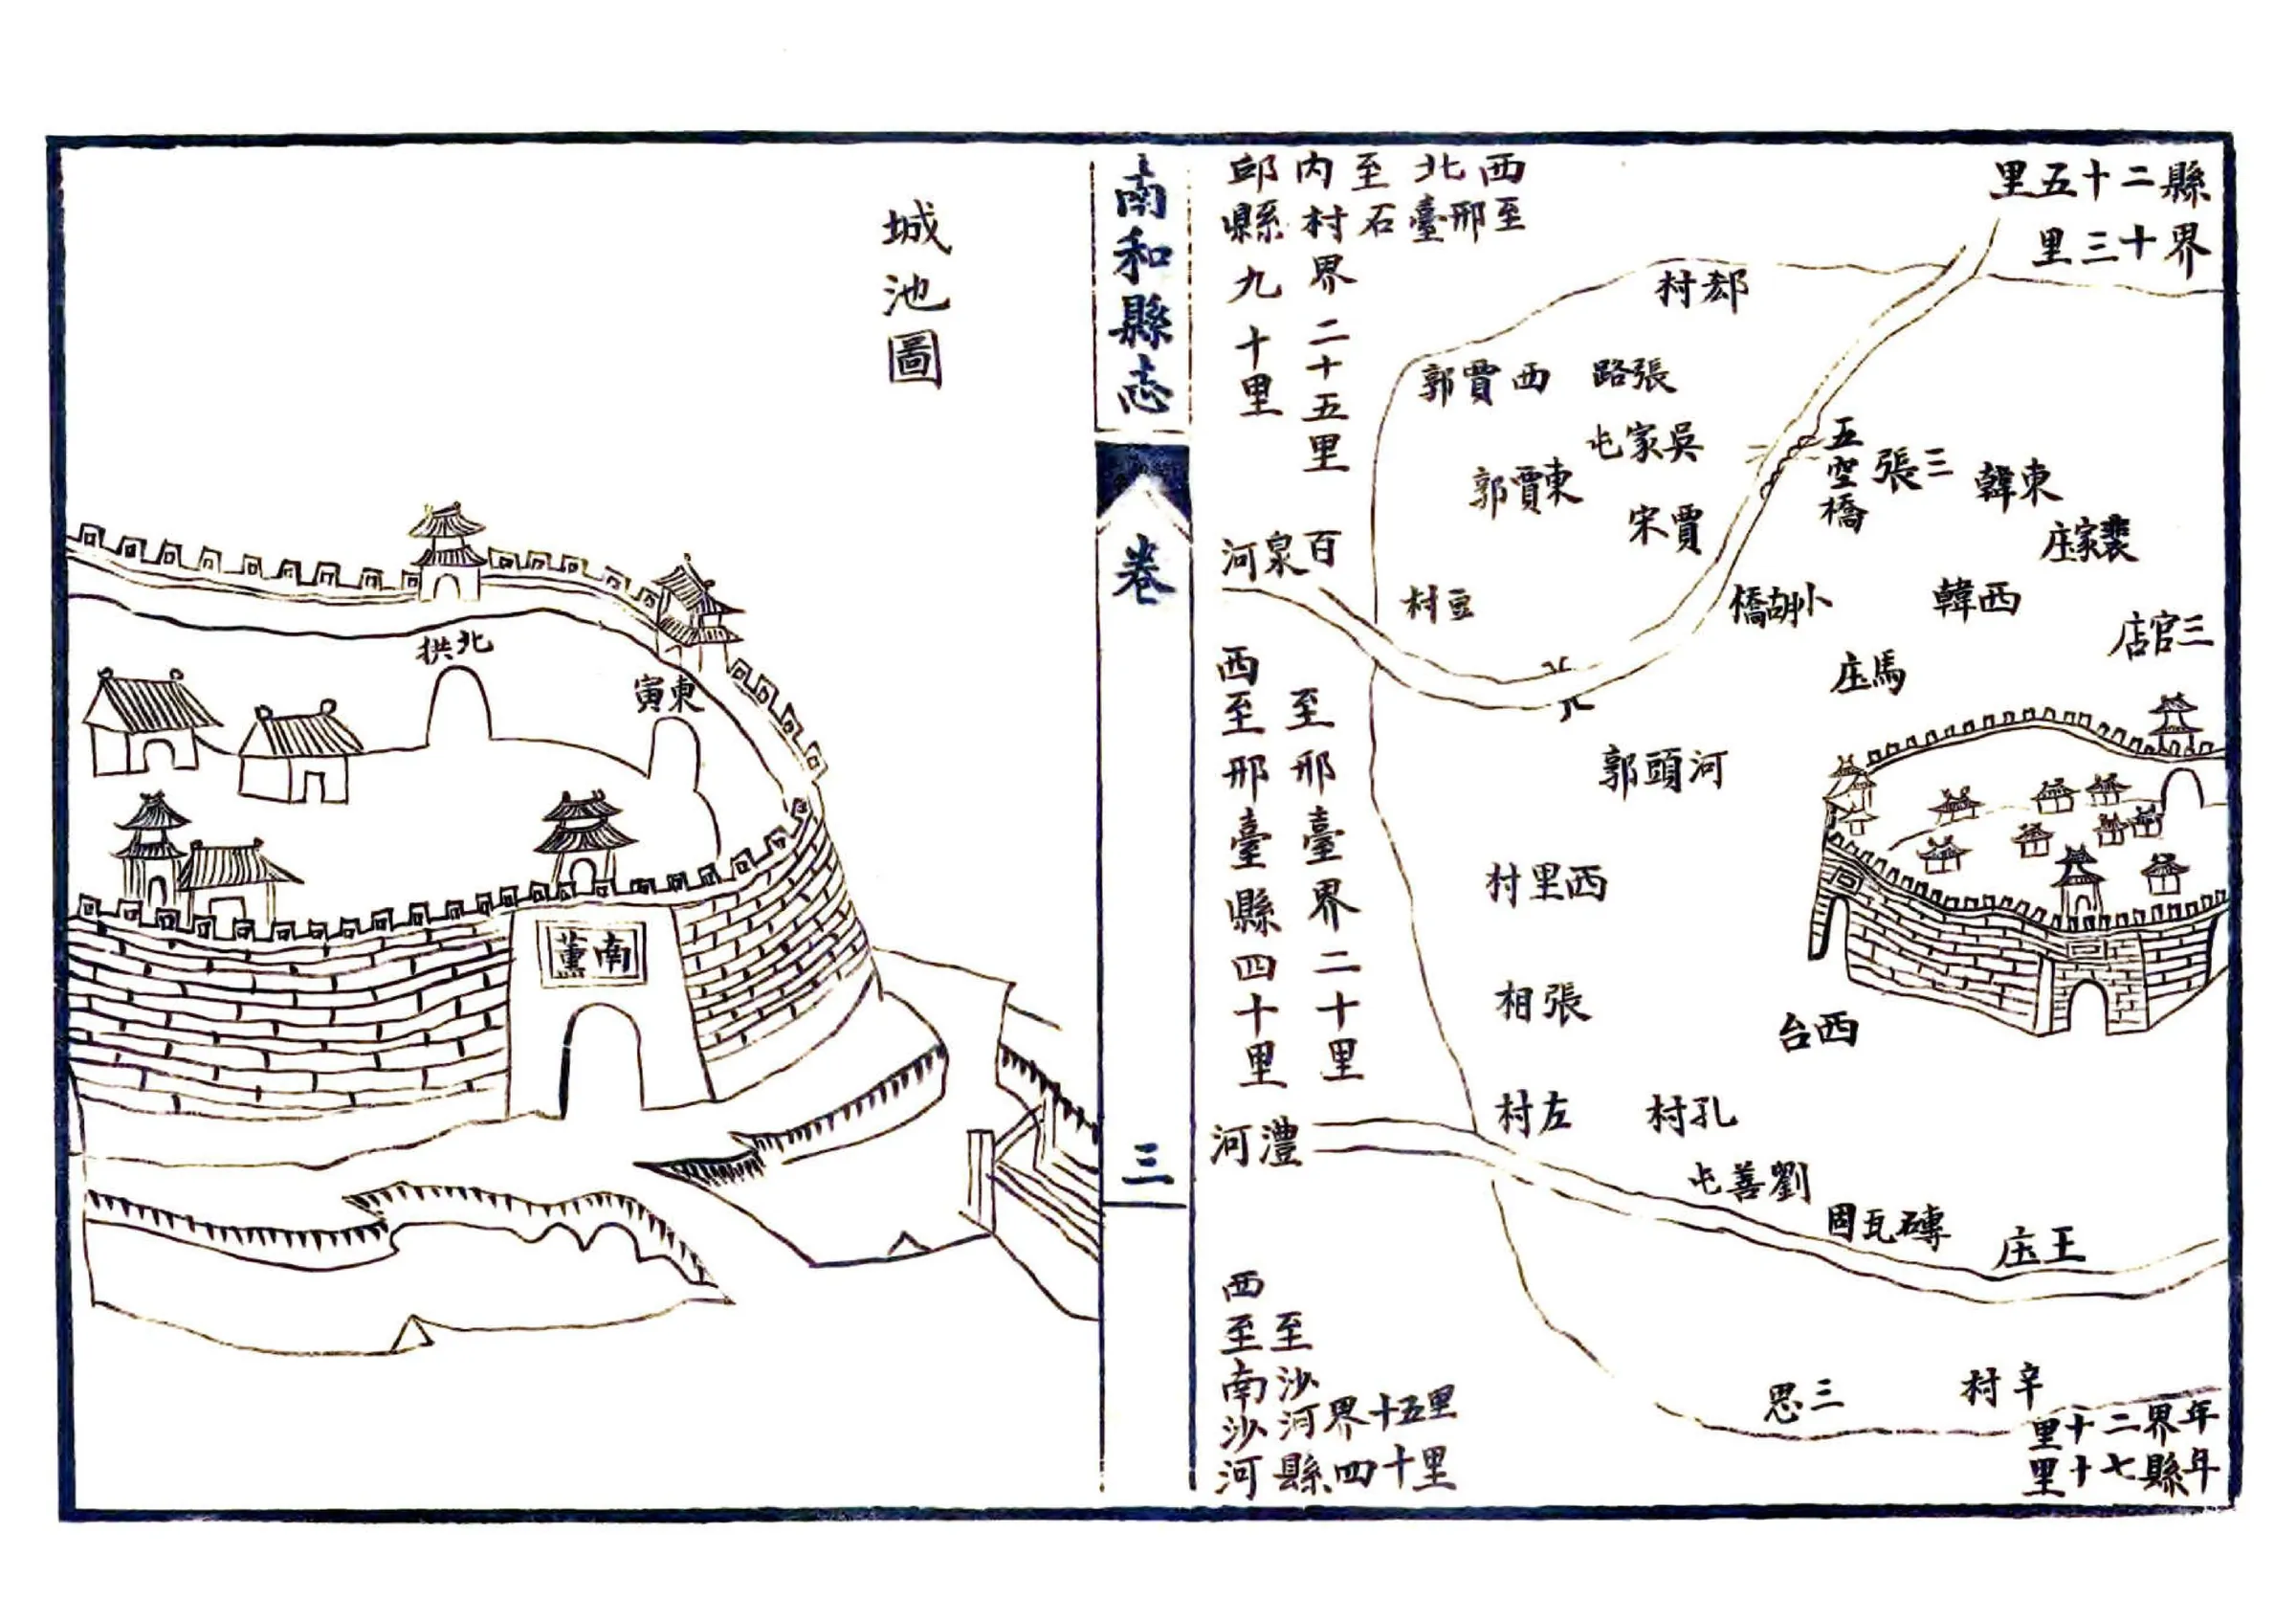 縣二十五里
界十三里
西北至內邱縣九十里
至邢臺石村界二十五里
郄村
張路
西賈郭
吳家屯
三張
五空橋
東韓
東賈郭
賈宋
裴家庄
百泉河
豆村
小胡橋
西韓
三官店
馬庄
至邢臺界二十里
西至邢臺縣四十里
河頭郭
西里村
張相
西台
孔村
左村
澧河
劉善屯
磚瓦固
王庄
三思
辛村
年界二十里
年縣七十里
至沙河界十五里
西至南沙河縣四十里
南和縣志
卷
三
城池圖
北拱
東寅
南薰